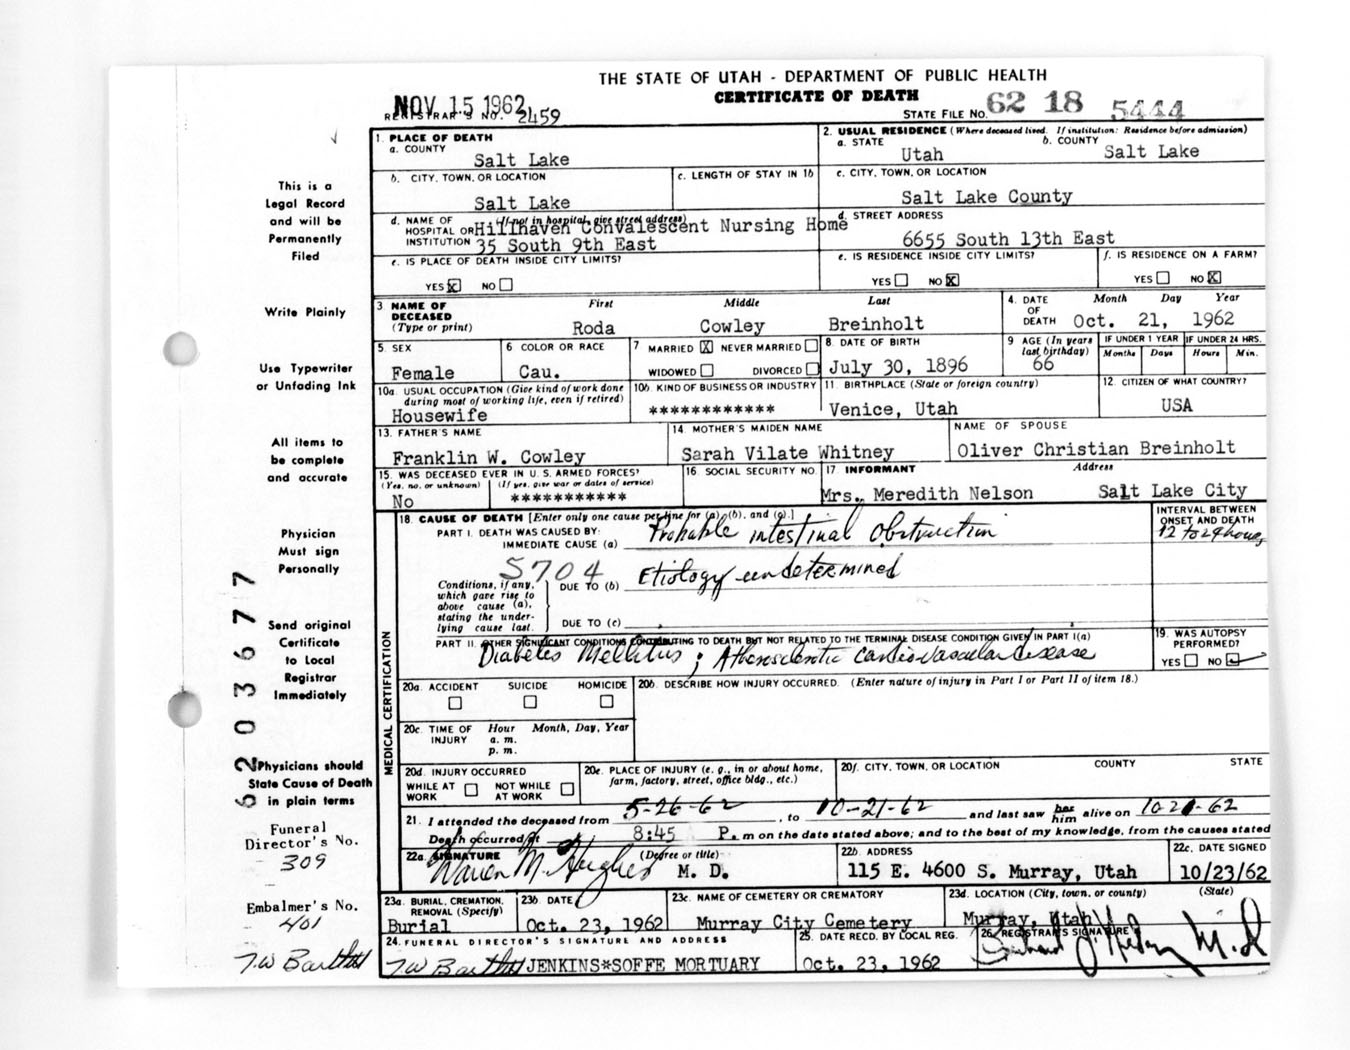 THE STATE OF UTAH - DEPARTMENT OF PUBLIC HEALTH
CERTIFICATE OF DEATH
NOV 15 1962
REGISTRAR'S NO. 2459
STATE FILE NO. 62 18 5444
1. PLACE OF DEATH
a. COUNTY
Salt Lake
2. USUAL RESIDENCE (Where deceased lived. If institution: Residence before admission)
a. STATE
Utah
b. COUNTY
Salt Lake
b. CITY, TOWN, OR LOCATION
Salt Lake
c. LENGTH OF STAY IN 1b
c. CITY, TOWN, OR LOCATION
Salt Lake County
d. NAME OF HOSPITAL OR INSTITUTION (If not in hospital, give street address)
Hillhaven Convalescent Nursing Home
35 South 9th East
d. STREET ADDRESS
6655 South 13th East
e. IS PLACE OF DEATH INSIDE CITY LIMITS?
YES X NO
e. IS RESIDENCE INSIDE CITY LIMITS?
YES NO X
f. IS RESIDENCE ON A FARM?
YES NO X
3. NAME OF DECEASED (Type or print)
First Middle Last
Roda Cowley Breinholt
4. DATE OF DEATH
Month Day Year
Oct. 21, 1962
5. SEX
Female
6. COLOR OR RACE
Cau.
7. MARRIED X NEVER MARRIED
WIDOWED DIVORCED
8. DATE OF BIRTH
July 30, 1896
9. AGE (In years last birthday)
66
IF UNDER 1 YEAR
Months Days
IF UNDER 24 HRS.
Hours Min.
10a. USUAL OCCUPATION (Give kind of work done during most of working life, even if retired)
Housewife
10b. KIND OF BUSINESS OR INDUSTRY
************
11. BIRTHPLACE (State or foreign country)
Venice, Utah
12. CITIZEN OF WHAT COUNTRY?
USA
13. FATHER'S NAME
Franklin W. Cowley
14. MOTHER'S MAIDEN NAME
Sarah Vilate Whitney
NAME OF SPOUSE
Oliver Christian Breinholt
15. WAS DECEASED EVER IN U. S. ARMED FORCES?
(Yes, no, or unknown) (If yes, give war or dates of service)
No ***********
16. SOCIAL SECURITY NO.
17. INFORMANT Address
Mrs. Meredith Nelson Salt Lake City
MEDICAL CERTIFICATION
18. CAUSE OF DEATH [Enter only one cause per line for (a), (b), and (c).]
PART I. DEATH WAS CAUSED BY:
IMMEDIATE CAUSE (a) Probable intestinal obstruction
INTERVAL BETWEEN ONSET AND DEATH
12 to 24 hours
5704
Conditions, if any, which gave rise to above cause (a), stating the underlying cause last.
DUE TO (b) Etiology undetermined
DUE TO (c)
PART II. OTHER SIGNIFICANT CONDITIONS CONTRIBUTING TO DEATH BUT NOT RELATED TO THE TERMINAL DISEASE CONDITION GIVEN IN PART I(a)
Diabetes Mellitus; Atherosclerotic cardiovascular disease
19. WAS AUTOPSY PERFORMED?
YES NO
20a. ACCIDENT SUICIDE HOMICIDE
20b. DESCRIBE HOW INJURY OCCURRED. (Enter nature of injury in Part I or Part II of item 18.)
20c. TIME OF INJURY
Hour Month, Day, Year
a. m.
p. m.
20d. INJURY OCCURRED
WHILE AT WORK NOT WHILE AT WORK
20e. PLACE OF INJURY (e. g., in or about home, farm, factory, street, office bldg., etc.)
20f. CITY, TOWN, OR LOCATION COUNTY STATE
21. I attended the deceased from 5-26-62, to 10-21-62 and last saw her him alive on 10-21-62
Death occurred at 8:45 P. m on the date stated above; and to the best of my knowledge, from the causes stated
22a. SIGNATURE (Degree or title)
Warren M. Hughes M. D.
22b. ADDRESS
115 E. 4600 S. Murray, Utah
22c. DATE SIGNED
10/23/62
23a. BURIAL, CREMATION, REMOVAL (Specify)
Burial
23b. DATE
Oct. 23, 1962
23c. NAME OF CEMETERY OR CREMATORY
Murray City Cemetery
23d. LOCATION (City, town, or county) (State)
Murray, Utah
24. FUNERAL DIRECTOR'S SIGNATURE AND ADDRESS
T W Bartlett JENKINS*SOFFE MORTUARY
25. DATE RECD. BY LOCAL REG.
Oct. 23, 1962
26. REGISTRAR'S SIGNATURE
M.D.
This is a
Legal Record
and will be
Permanently
Filed
Write Plainly
Use Typewriter
or Unfading Ink
All items to
be complete
and accurate
Physician
Must sign
Personally
Send original
Certificate
to Local
Registrar
Immediately
Physicians should
State Cause of Death
in plain terms
Funeral
Director's No.
309
Embalmer's No.
401
T W Bartlett
62 03677